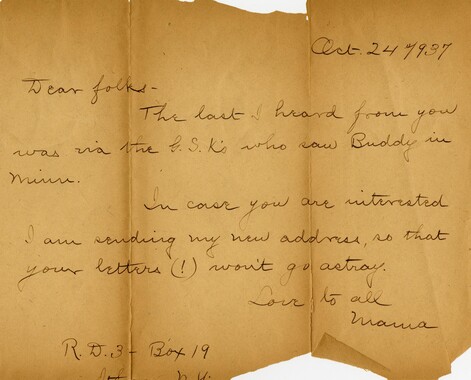 Oct. 24 1937
Dear folks-
The last I heard from you
was via the G.S.K's who saw Buddy in
Minn.
In case you are interested
I am sending my new address, so that
your letters (!) won't go astray.
Love to all
Mama
R.D. 3 - Box 19
N.Y.